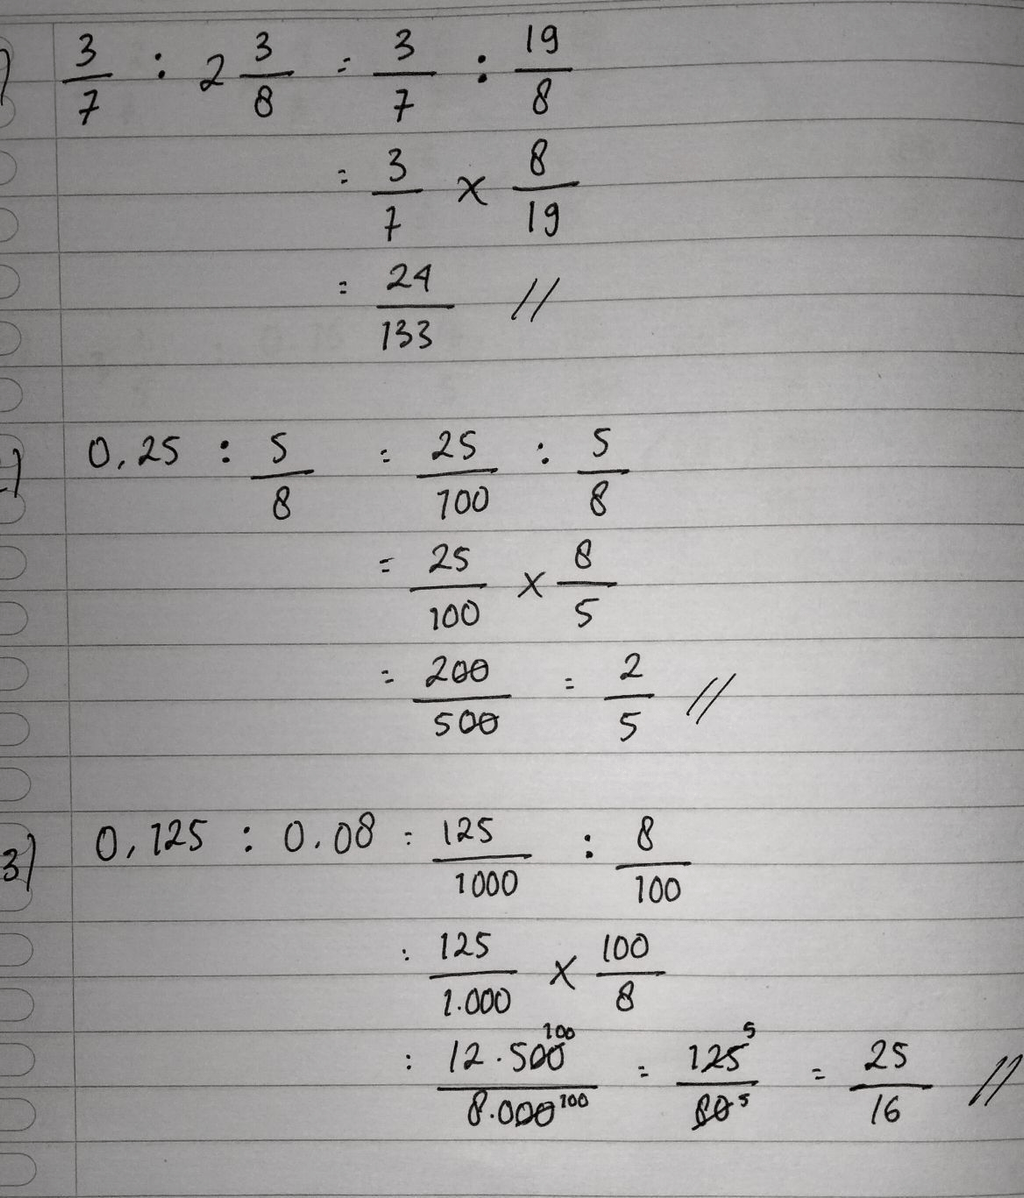 ) 3/7 : 2 3/8 = 3/7 : 19/8
= 3/7 x 8/19
= 24/133 //
) 0,25 : 5/8 = 25/100 : 5/8
= 25/100 x 8/5
= 200/500 = 2/5 //
3) 0,125 : 0.08 = 125/1000 : 8/100
: 125/1.000 x 100/8
: 12.500 100/8.000 100 = 125 5/80 5 = 25/16 //